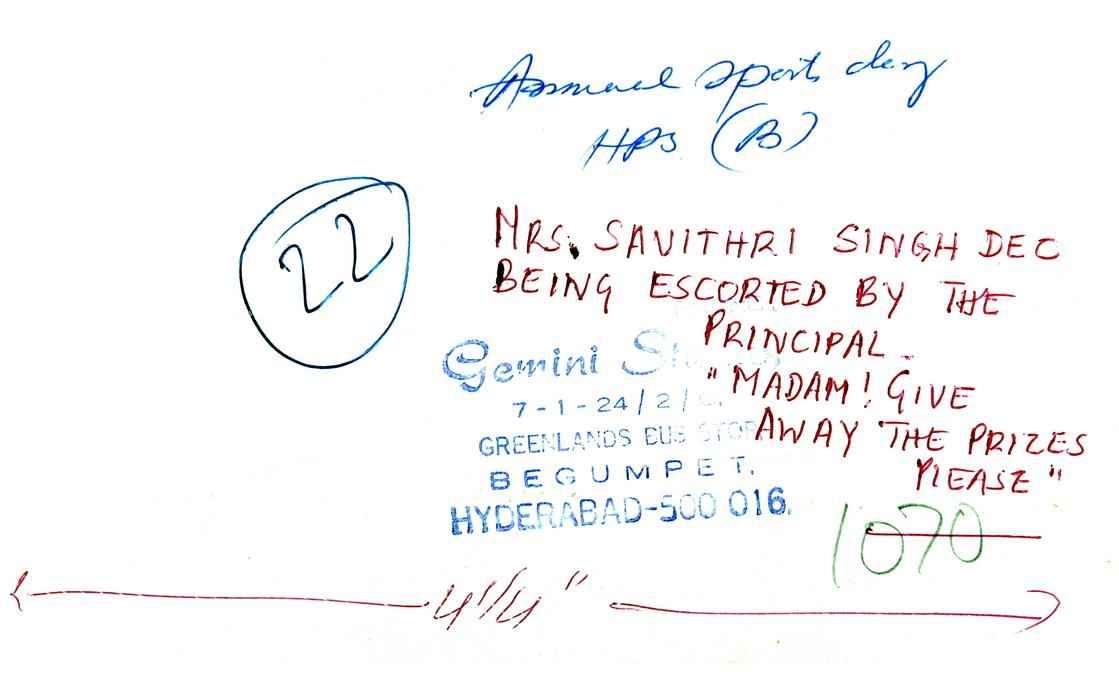 Annual sports day
HPS (B)
22
MRS. SAVITHRI SINGH DEC
BEING ESCORTED BY THE
PRINCIPAL.
"MADAM! GIVE
AWAY THE PRIZES
PLEASE"
Gemini
7-1-24/2/
GREENLANDS BUS STOP
BEGUMPET.
HYDERABAD-500 016.
1070
4 1/4"